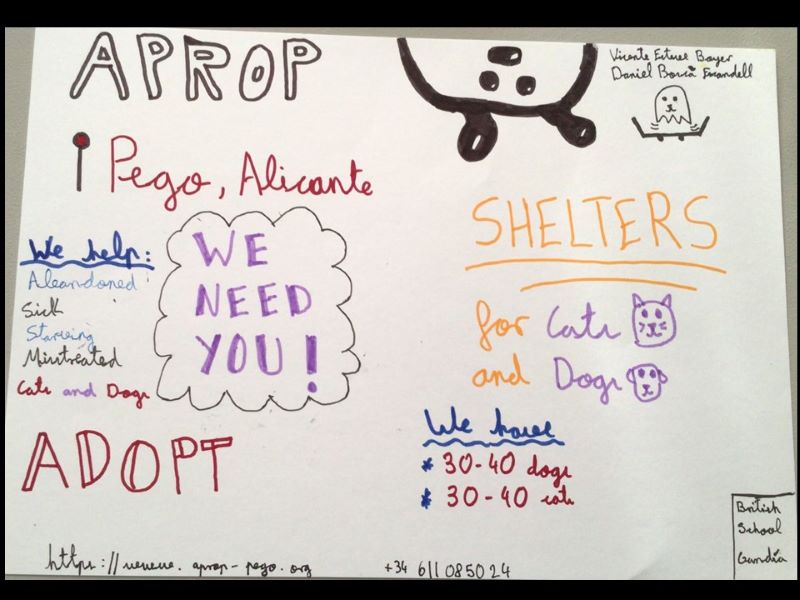 APROP
Vicente Esteve Boyer
Daniel Borrà Escandell
Pego, Alicante
We help:
Abeandoned
Sick
Starving
Mistreated
Cats and Dogs
WE
NEED
YOU!
SHELTERS
for Cats
and Dogs
We have
* 30-40 dogs
* 30-40 cats
ADOPT
British
School
Gandía
https://www.aprop-pego.org
+34 611 085024